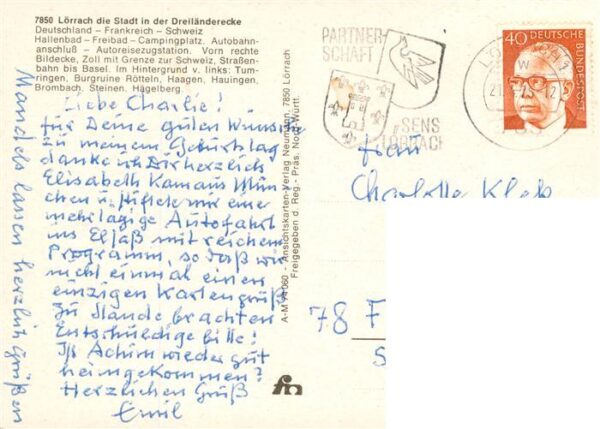 7850 Lörrach die Stadt in der Dreiländerecke
Deutschland – Frankreich – Schweiz
Hallenbad – Freibad – Campingplatz. Autobahn-
anschluß – Autoreisezugstation. Vorn rechte
Bildecke, Zoll mit Grenze zur Schweiz, Straßen-
bahn bis Basel. Im Hintergrund v. links: Tum-
ringen, Burgruine Rötteln, Haagen, Hauingen,
Brombach, Steinen, Hägelberg
Liebe Charlie!
für Deine guten Wünsche
zu meinem Geburtstag
danke ich Dir herzlich
Elisabeth kam aus Mün
chen u. stiftete mir eine
mehrtägige Autofahrt
ins Elsaß mit reichem
Programm, so daß wir
nicht einmal einen
einzigen Kartengruß
zu Stande brachten
Entschuldige bitte!
Ist Achim wieder gut
heimgekommen?
Herzlichen Gruß
Emil
Mandels lassen herzlich Grüßen
A-M 74 060 - Ansichtskarten-Verlag Neumann, 7850 Lörrach
Freigegeben d. Reg.- Präs. Nord-Württ.
PARTNER-
SCHAFT
SENS
LÖRRACH
40
DEUTSCHE
BUNDESPOST
Frau
Charlotte
78 F
S